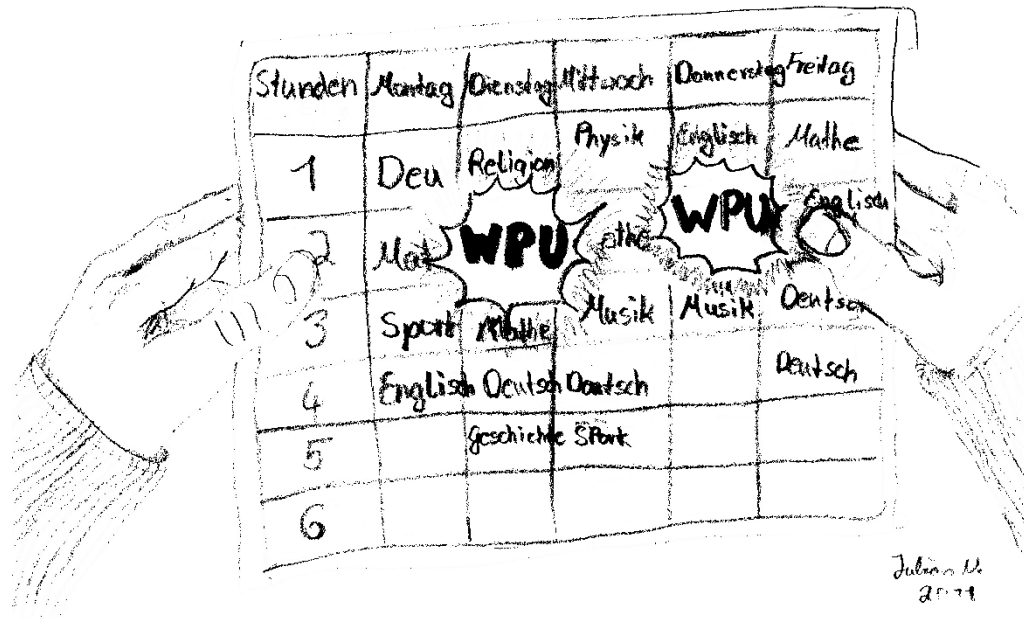 Stunden Montag Dienstag Mittwoch Donnerstag Freitag
1 Deu Religion Physik Englisch Mathe
2 Mat WPU athe WPU Englisch
3 Sport Mathe Musik Musik Deutsch
4 Englisch Deutsch Deutsch Deutsch
5 Geschichte Sport
6